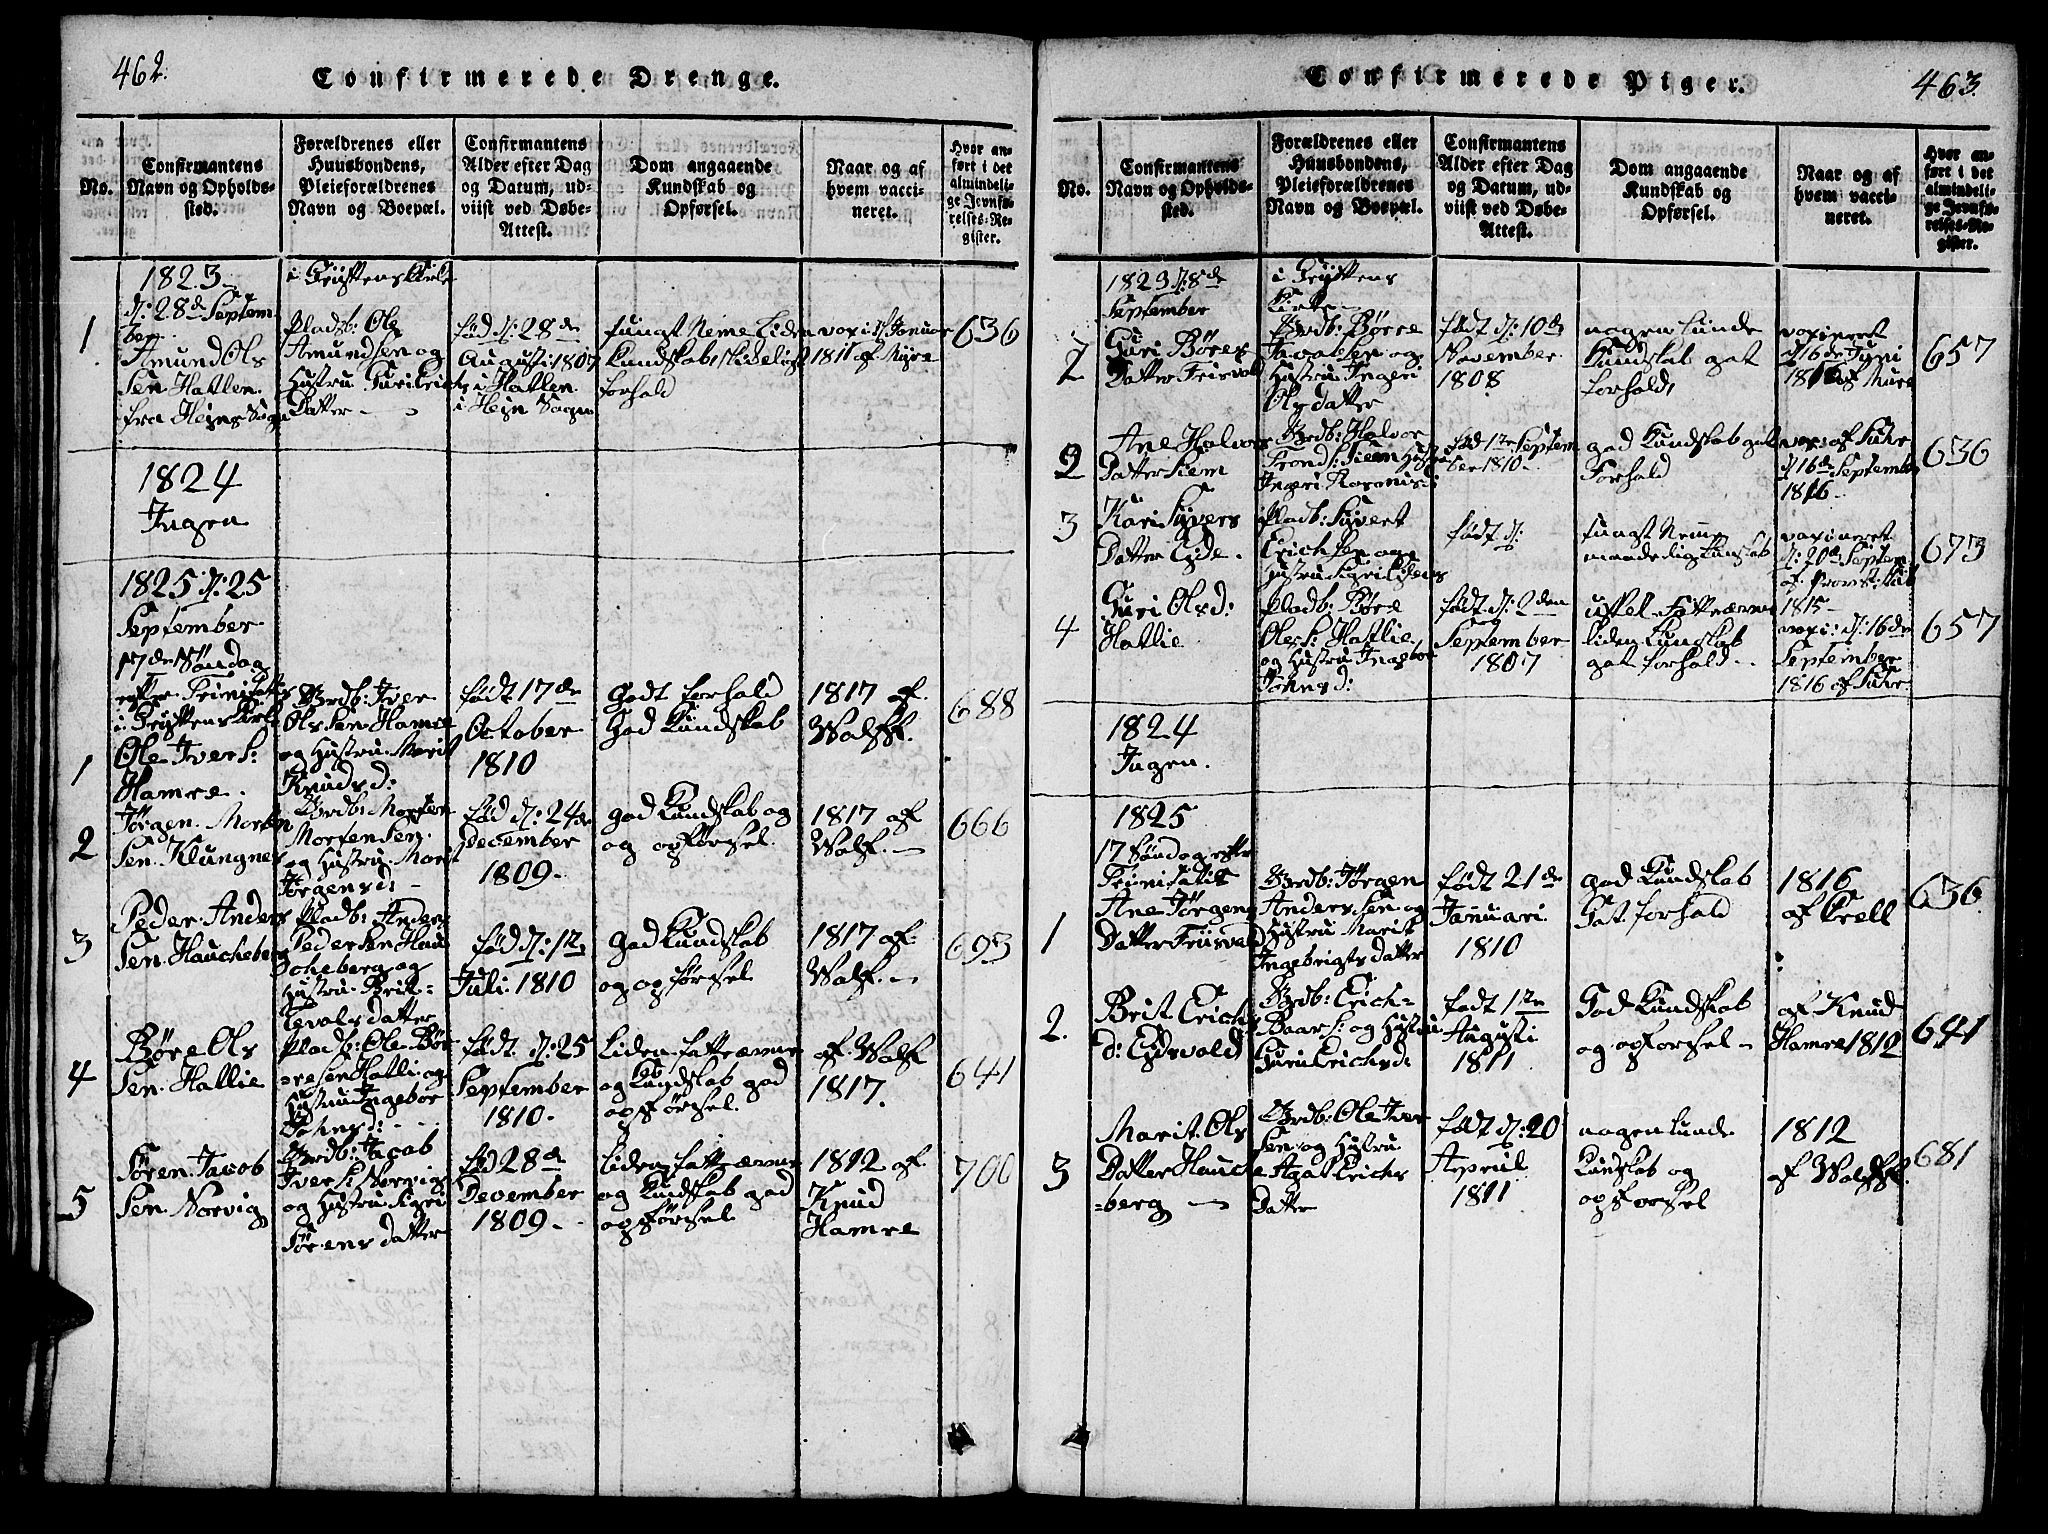 462.
Confirmerede Drenge.
No.
Confirmantens
Navn og Opholds-
sted.
Forældrenes eller
Huusbondens,
Pleieforældrenes
Navn og Boepæl.
Confirmantens
Alder efter Dag
og Datum, ud-
viist ved Døbe-
Attest.
Dom angaaende
Kundskab og
Opførsel.
Naar og af
hvem vacci-
neret.
Hvor an-
ført i det
almindeli-
ge Jevnfø-
relses-Re-
gister.
1823
d: 28de Septem
ber
1
Amund Ols
Sen Hatlen
fra Hejns Sogn
i Gryttens Kirke
Pladsb: Ole
Amundsen og
Hustru Guri Erich
Datter
fød d: 28de
Augusti 1807
i Hatlen
i Hejn Sogn
tungt Neme Liden
Kundskab, skikkeligt
forhold
vaxi: d: Januar
1811 af Myre
636
1824
Ingen
1825 d: 25
September
17de Søndag
efter Trinitatis
i Gryttens Kirke
1
Ole Ivers:
Hamre.
Grdb: Iver
Ols Sen Hamre
og Hustru Marit
Knudsd:
født 17de
October
1810
Godt forhold
God Kundskab
1817 af
Walff.
688
2
Jørgen Morten
Sen Klungnes
Grdb: Morten
Mortensen
og Hustru Marit
Jørgensd:
fød d: 24de
December
1809.
god Kundskab og
og opførsel.
1817 af
Walf.
666
3
Peder Anders
Sen Haucheberg
Pladb: Anders
Pedersen Hau
cheberg og
Hustru Brit
Evalsdatter
fød d: 1te
Juli 1810
god Kundskab
og opførsel
1817 af
Walf.
693
4
Børe Ols
Sen Hatlie
Pladb: Ole Bør
resen Hatli og
Hustru Ingebor
Johnsd:
født d: 25
September
1810.
Liden fatteævne
og Kundskab god
opførsel.
af Walf
1817.
641
5
Søren Jacob
Sen Norvig
Grdb: Jacob
Ivers: Norvig
og Hustru Sigri
Sørensdatter
fød 28de
December
1809
Liden fatteævne
og Kundskab god
opførsel
1812 af
Knud
Hamre
700
463.
Confirmerede Piger.
No.
Confirmantens
Navn og Opholds-
sted.
Forældrenes eller
Huusbondens,
Pleieforældrenes
Navn og Boepæl.
Confirmantens
Alder efter Dag
og Datum, ud-
viist ved Døbe-
Attest.
Dom angaaende
Kundskab og
Opførsel.
Naar og af
hvem vacci-
neret.
Hvor an-
ført i det
almindeli-
ge Jevnfø-
relses-Re-
gister.
1823 d: 8de
September
i Gryttens
Kirke
Guri Børes
Datter Trisvald
Grdb: Børre
Hustru Ingeri
Olsdatter
født d: 10de
November
1808
nogenlunde
Kundskab got
forhold,
vaxineret
d 16de Juni
657
2
Ane Halvor
Datter Siem
Grdb: Halvor
Tronds: Siem Hustru
Ingeri Rasmusd:
fød 1te Septem
ber 1810
god Kundskab got
Forhold
vax: af Suhr
d 16de September
1816
636
3
Kari Syvers
Datter Eyde.
Pladb: Syvert
Erichsen og
født d:
tungt Nemme
maadelig Kunskab
vaxineret
d: 20de Septem
1815
673
4
Guri Olsd:
Hatlie
Pladb: Børe
Olss: Hatlie
og Hustru Ingebor
Johnsd:
født d: 2den
September
1807
ussel Fatteævne
liden Kunskab
got forhold.
vaxi: d: 16de
September
1816 af Suhr
657
1824
Ingen.
1825
17 Søndag efter
Trinitatis
1
Ane Jørgens
Datter Trisvald
Grdb: Jørgen
Anderssen og
Hustru Marit
Ingebrigtsdatter
født 21de
Januari
1810
god Kundskab
Got forhold
1816
af Krell
636
2.
Brit Erichs
d: Eydsvold
Grdb: Erich
Baars: og Hustru
Guri Erichsd
født 1te
Augusti
1811
God Kundskab
og opførsel
af Knud
Hamre 1812
641
3
Marit Ols
Datter Hauch
berg
Grdb: Ole Iver
sen og Hustru
Agat Erichs
Datter
født d: 20
Apriil
1811
nogenlunde
Kundskab og
opførsel
1812
af Walff
681